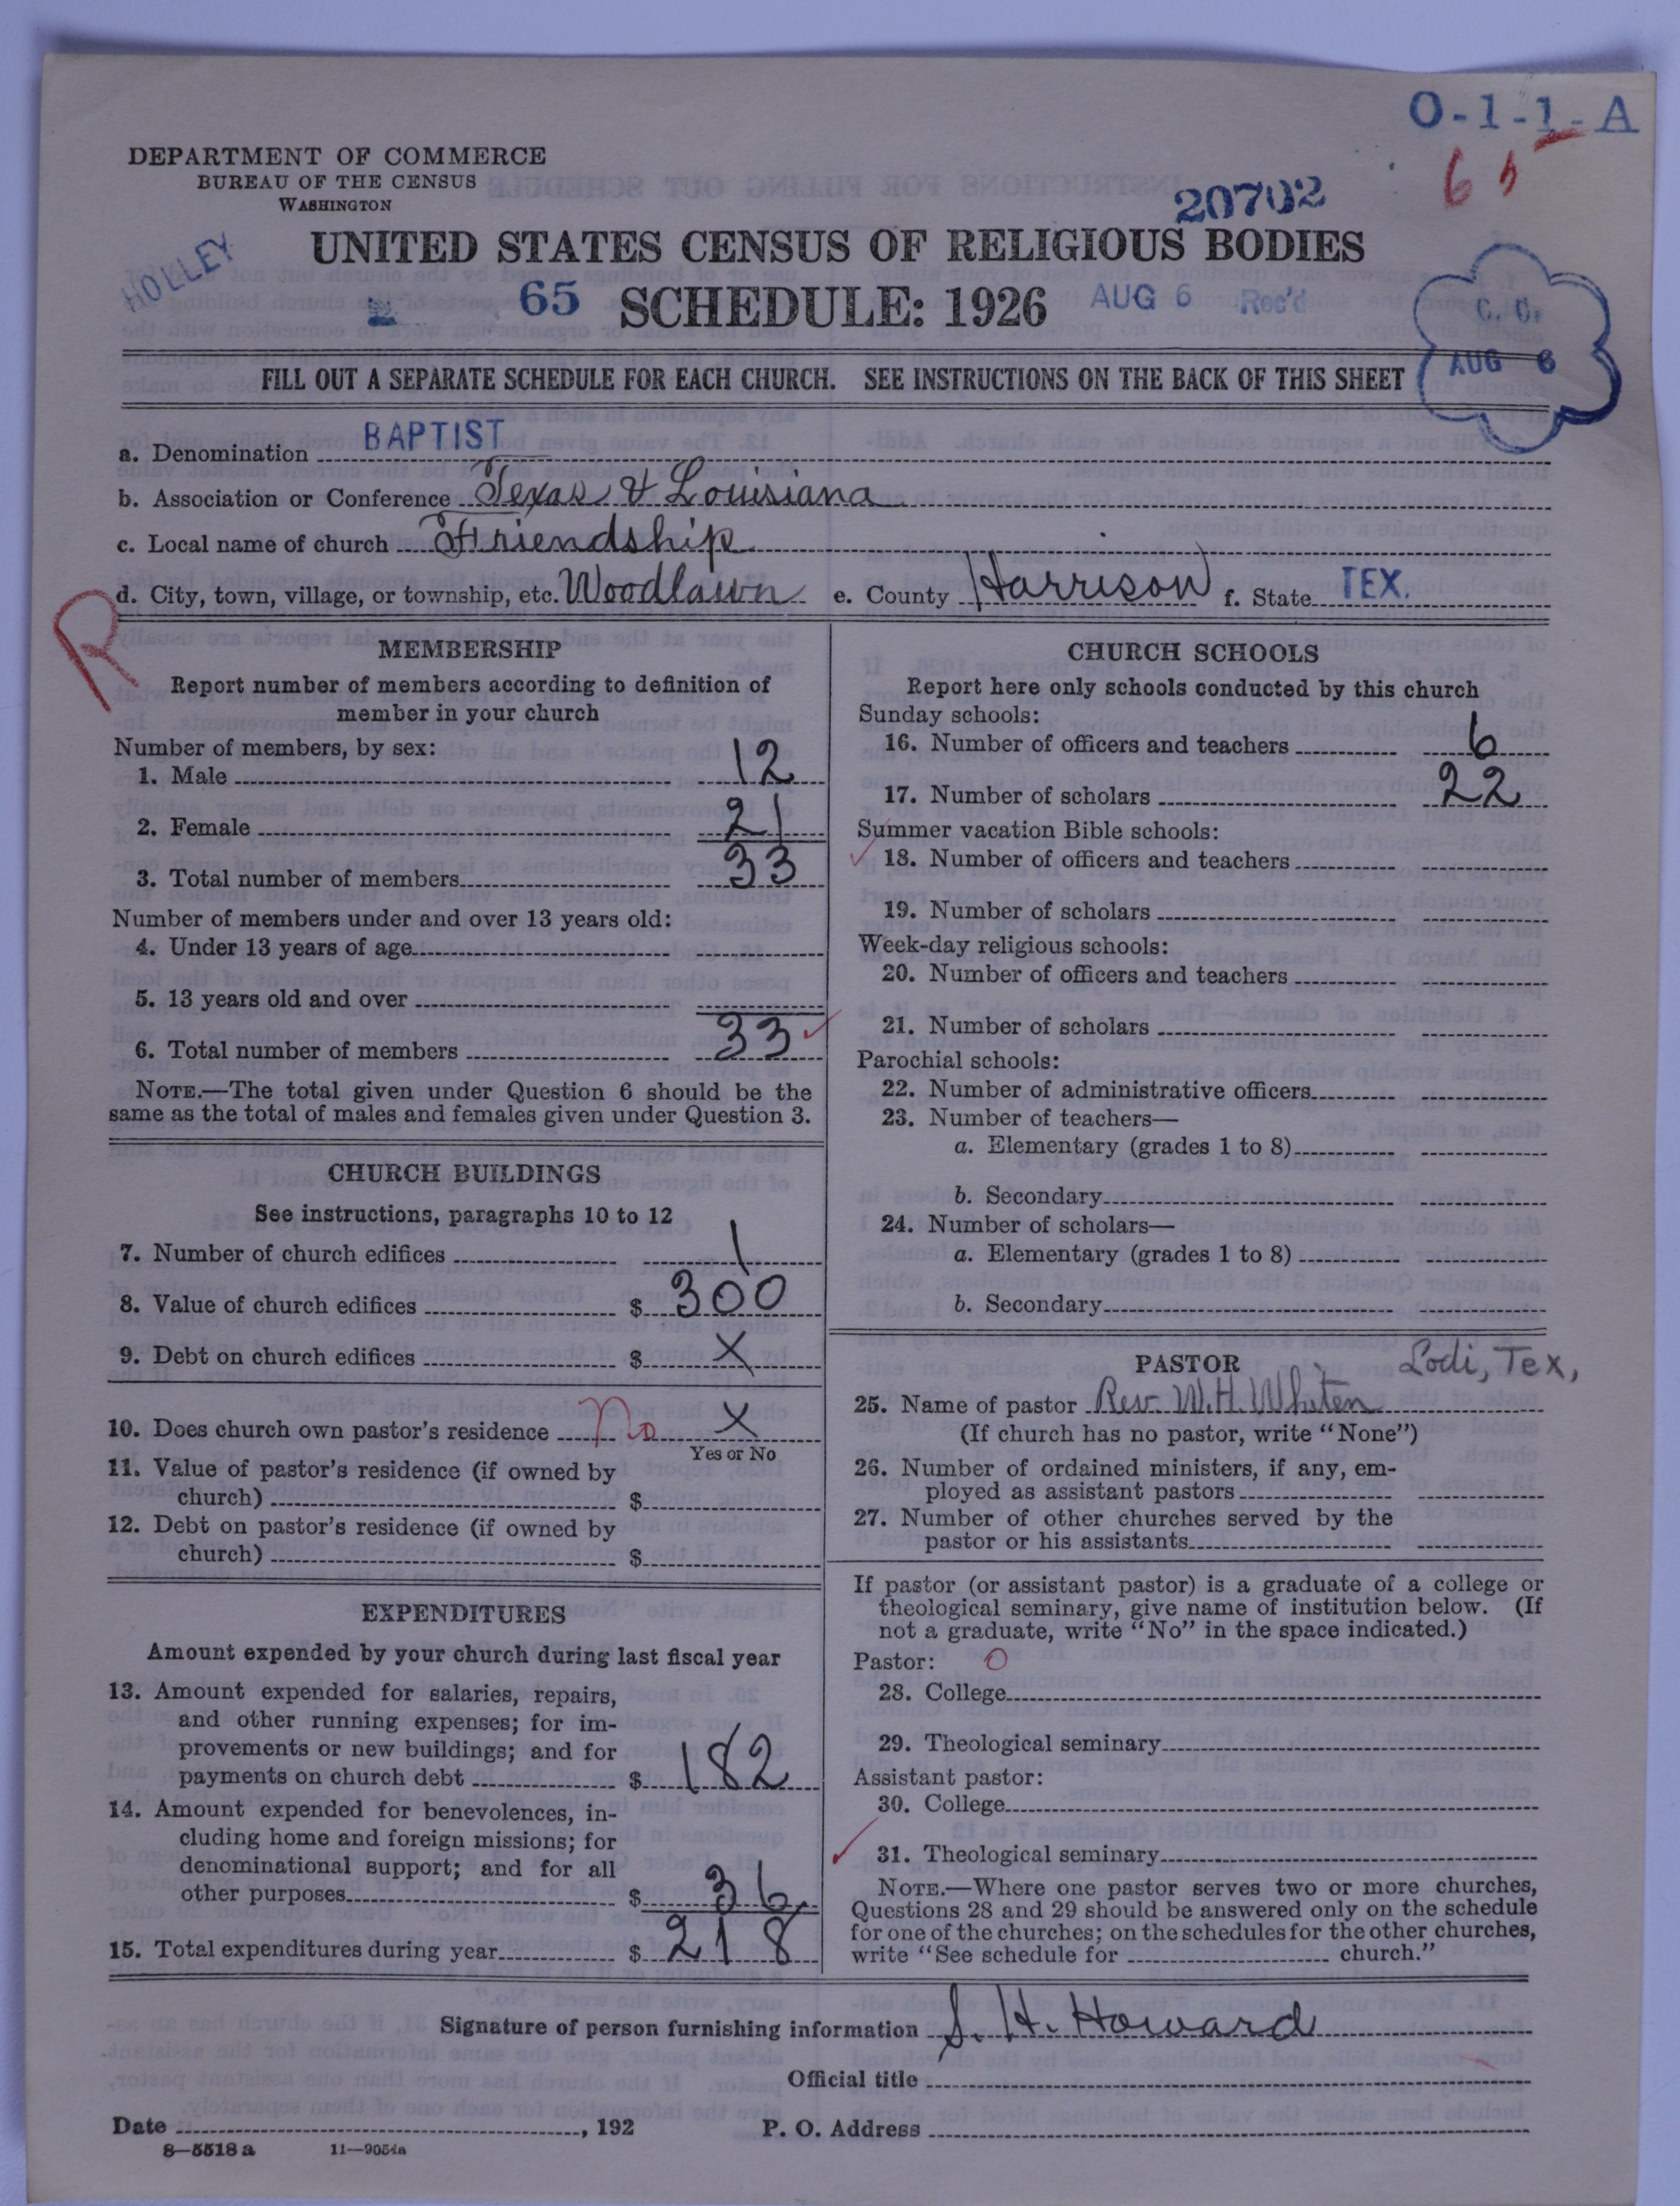 O-1-1-A
65
DEPARTMENT OF COMMERCE
BUREAU OF THE CENSUS
WASHINGTON
20702
HOLLEY
UNITED STATES CENSUS OF RELIGIOUS BODIES
65 SCHEDULE: 1926 AUG 6 Rec'd
C. O.
AUG 6
FILL OUT A SEPARATE SCHEDULE FOR EACH CHURCH. SEE INSTRUCTIONS ON THE BACK OF THIS SHEET
a. Denomination BAPTIST
b. Association or Conference Texas & Louisiana
c. Local name of church Friendship
d. City, town, village, or township, etc. Woodlawn e. County Harrison f. State TEX.
R
MEMBERSHIP
Report number of members according to definition of
member in your church
Number of members, by sex:
1. Male 12
2. Female 21
3. Total number of members 33
Number of members under and over 13 years old:
4. Under 13 years of age
5. 13 years old and over
6. Total number of members 33
NOTE.—The total given under Question 6 should be the
same as the total of males and females given under Question 3.
CHURCH BUILDINGS
See instructions, paragraphs 10 to 12
7. Number of church edifices 1
8. Value of church edifices $ 300
9. Debt on church edifices $ X
10. Does church own pastor's residence no X
Yes or No
11. Value of pastor's residence (if owned by
church) $
12. Debt on pastor's residence (if owned by
church) $
EXPENDITURES
Amount expended by your church during last fiscal year
13. Amount expended for salaries, repairs,
and other running expenses; for im-
provements or new buildings; and for
payments on church debt $ 182
14. Amount expended for benevolences, in-
cluding home and foreign missions; for
denominational support; and for all
other purposes $ 36
15. Total expenditures during year $ 218
CHURCH SCHOOLS
Report here only schools conducted by this church
Sunday schools:
16. Number of officers and teachers 6
17. Number of scholars 22
Summer vacation Bible schools:
18. Number of officers and teachers
19. Number of scholars
Week-day religious schools:
20. Number of officers and teachers
21. Number of scholars
Parochial schools:
22. Number of administrative officers
23. Number of teachers—
a. Elementary (grades 1 to 8)
b. Secondary
24. Number of scholars—
a. Elementary (grades 1 to 8)
b. Secondary
PASTOR Lodi, Tex,
25. Name of pastor Rev. W.H. Whiten
(If church has no pastor, write "None")
26. Number of ordained ministers, if any, em-
ployed as assistant pastors
27. Number of other churches served by the
pastor or his assistants
If pastor (or assistant pastor) is a graduate of a college or
theological seminary, give name of institution below. (If
not a graduate, write "No" in the space indicated.)
Pastor: O
28. College
29. Theological seminary
Assistant pastor:
30. College
31. Theological seminary
NOTE.—Where one pastor serves two or more churches,
Questions 28 and 29 should be answered only on the schedule
for one of the churches; on the schedules for the other churches,
write "See schedule for church."
Signature of person furnishing information S. H. Howard
Official title
Date , 192 P. O. Address
8—5518 a 11—9054a